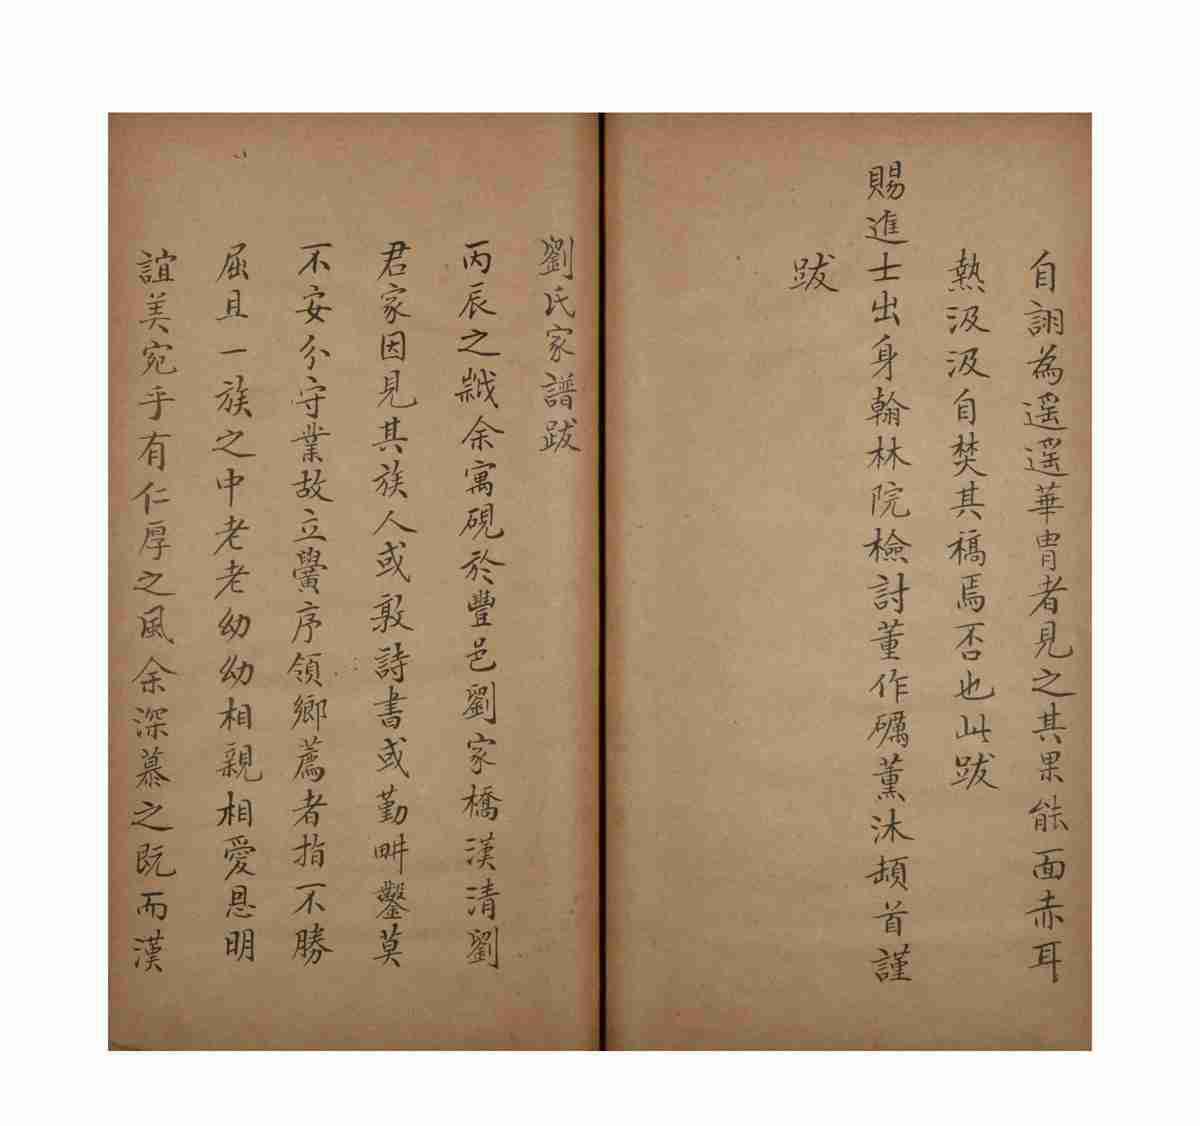 自詡為遥遥華胄者見之其果能面赤耳
熱汲汲自焚其稿焉否也此跋
賜進士出身翰林院檢討董作礪薰沐頓首謹
跋
劉氏家譜跋
丙辰之余寓硯於豐邑劉家橋漢清劉
君家因見其族人或敦詩書或勤畊鑿莫
不安分守業故立黌序領鄉薦者指不勝
屈且一族之中老老幼幼相親相愛恩明
誼美宛乎有仁厚之風余深慕之既而漢